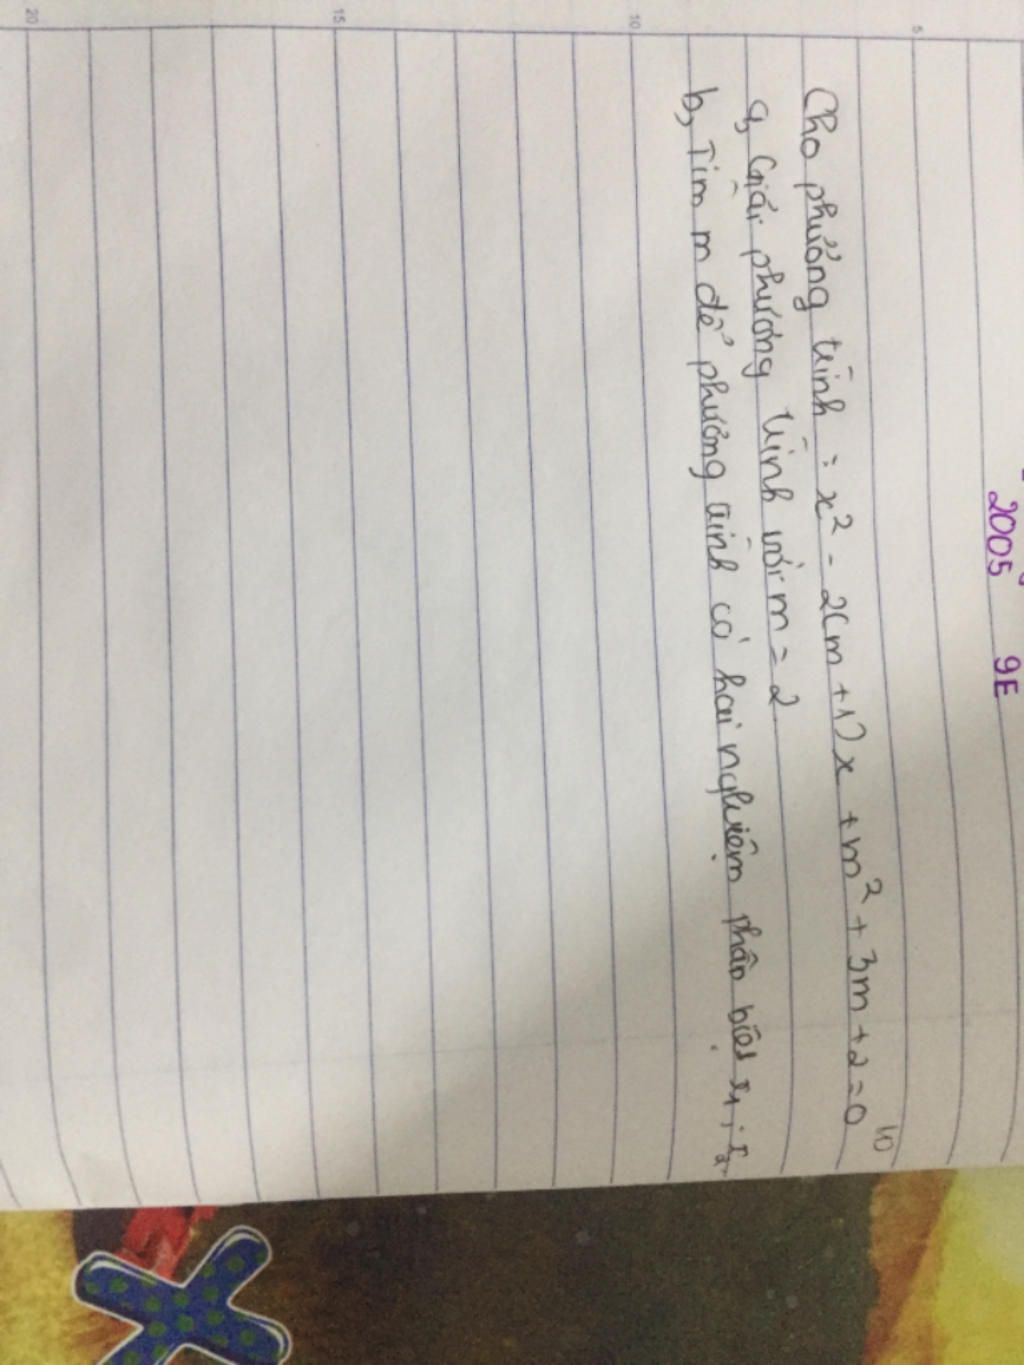 2005 9E
5
10
15
20
Cho phương trình : x² - 2(m+1)x + m² + 3m + 2 = 0
a, Giải phương trình với m = 2
b, Tìm m để phương trình có hai nghiệm phân biệt x₁ ; x₂